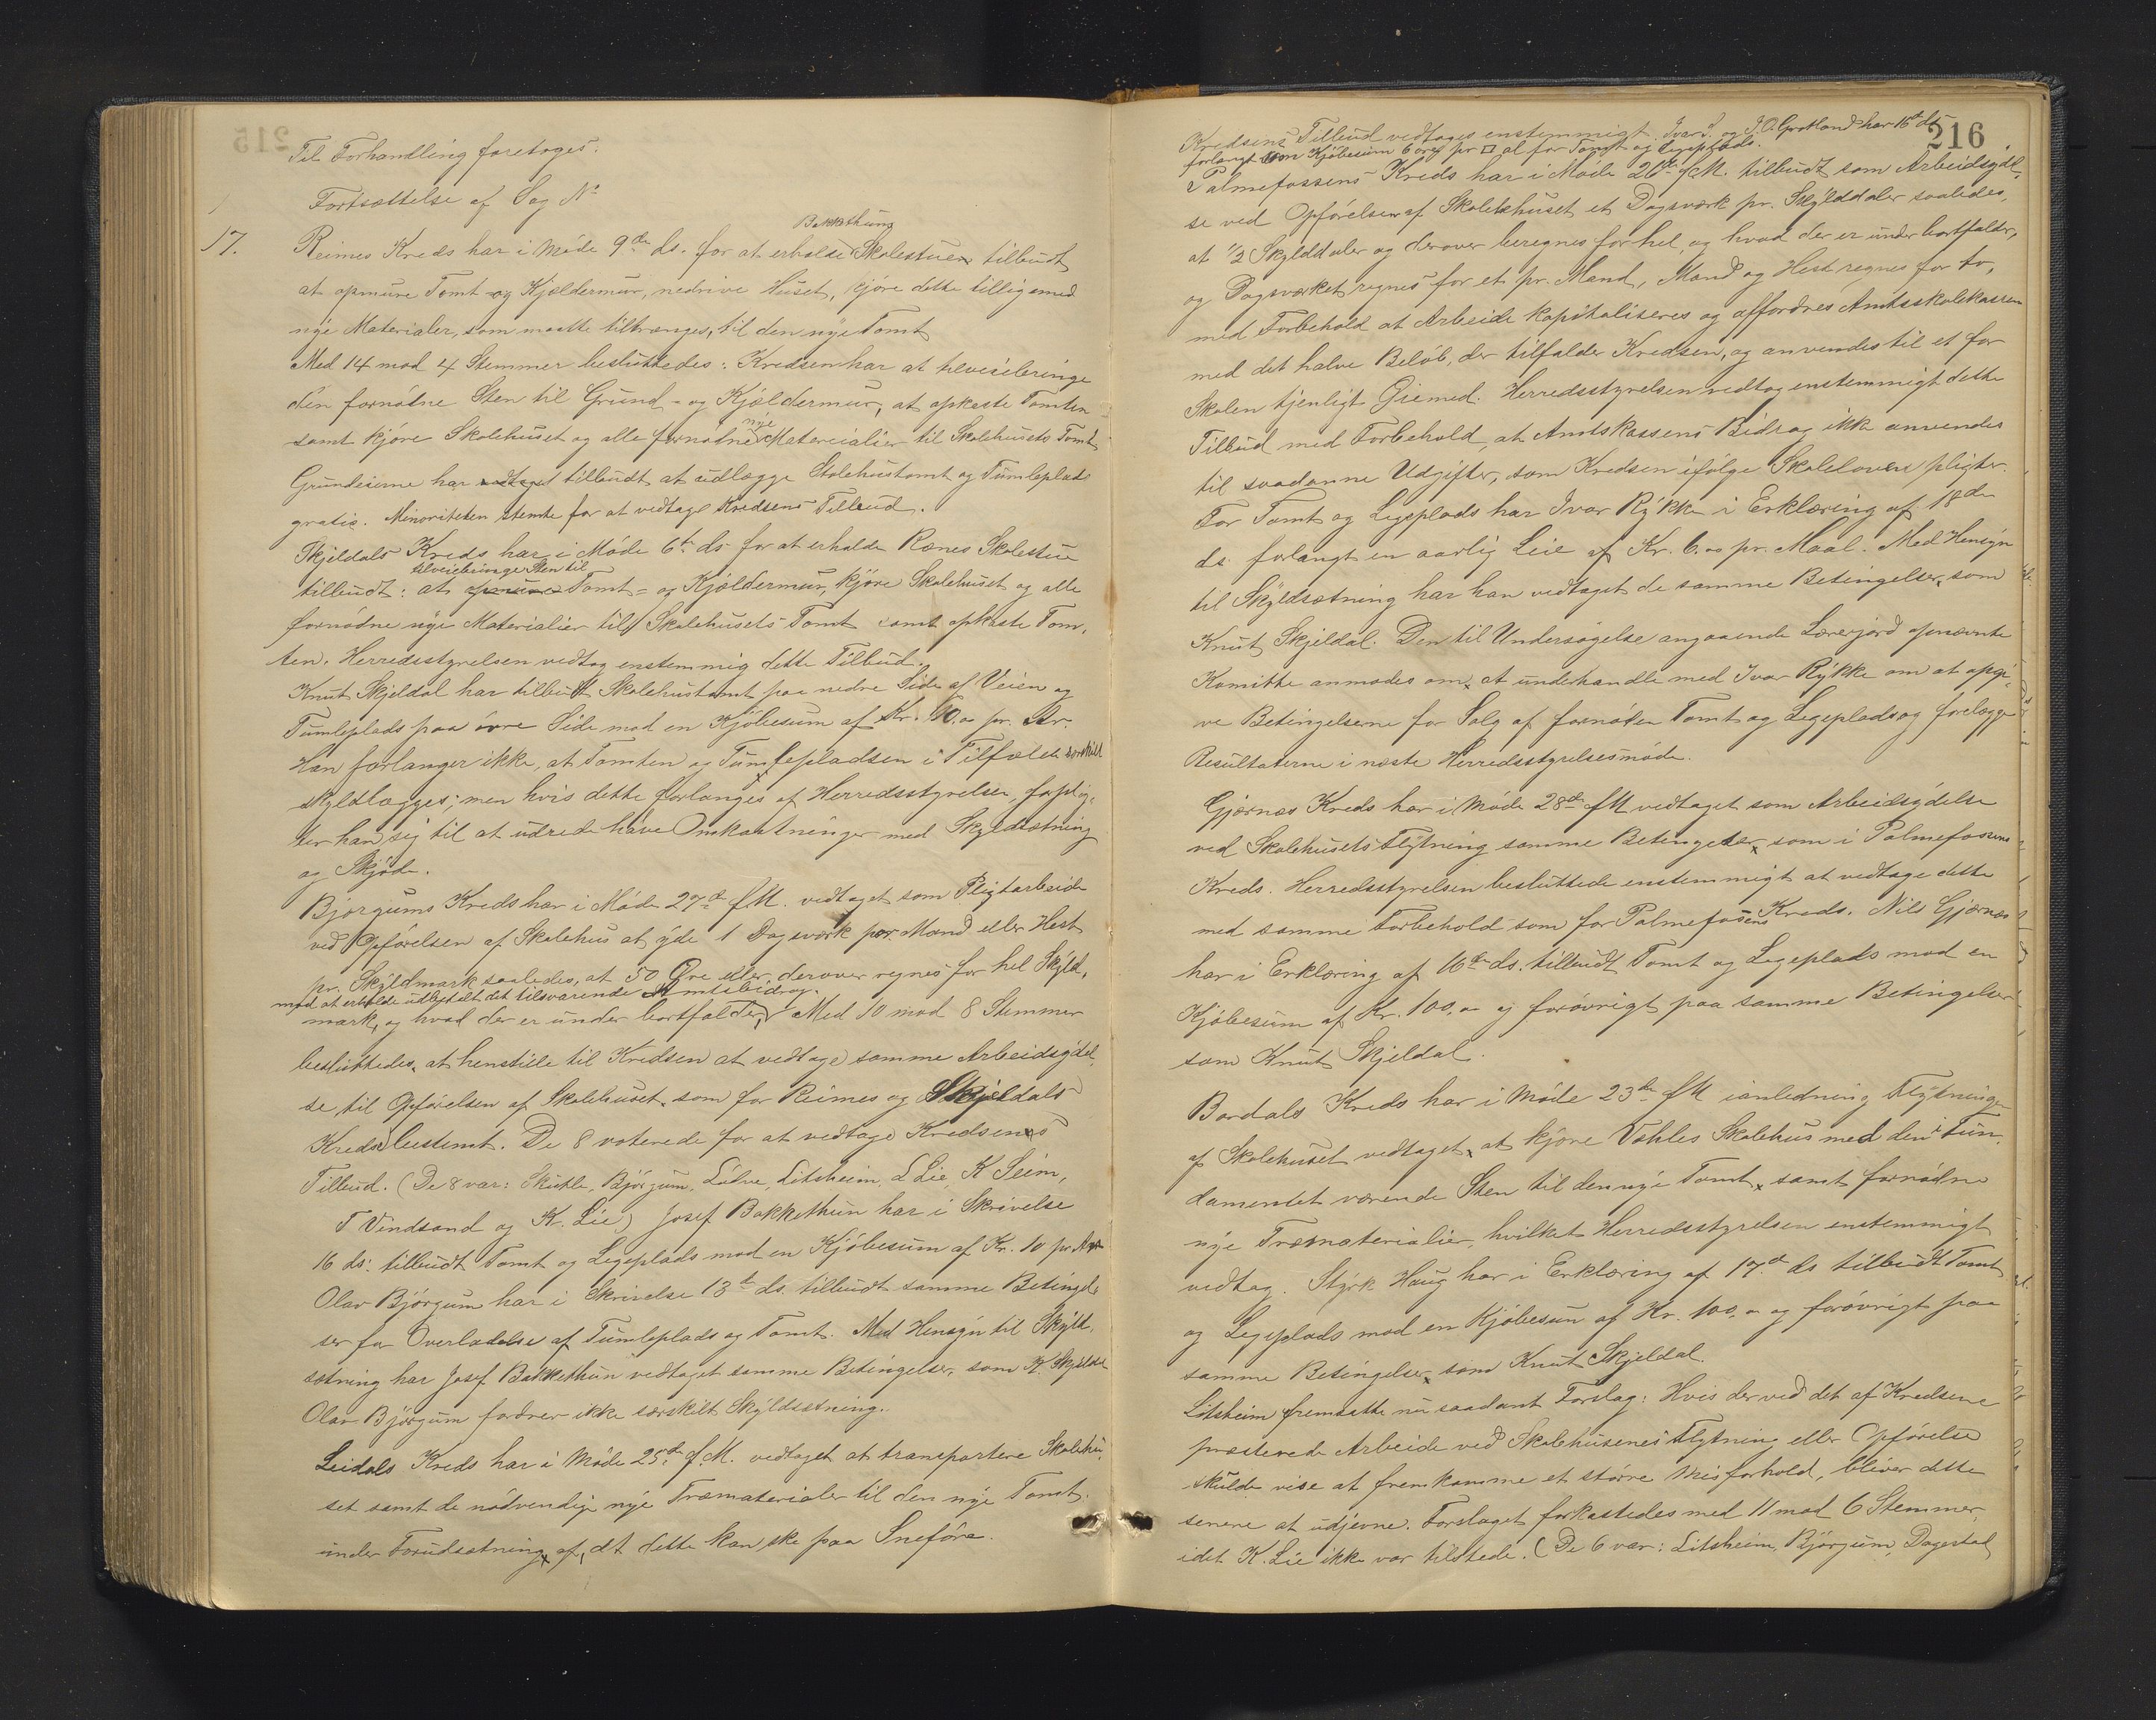 Til Forhandling foretoges:
Fortsættelse af Sag No
17. Reimes Kreds har i Møde 9de ds. for at erholde Bakkethung Skolestuen tilbudt
at opmure Tomt og Kjældermur, nedrive Huset, kjøre dette tilligemed
nye Materialer, som maatte tiltrænges, til den nye Tomt
Med 14 mod 4 Stemmer besluttedes: Kredsen har at tilveiebringe
den fornødne Sten til Grund- og Kjældermur, at opkaste Tomten
samt kjøre Skolehuset og alle fornødne nye Materialier til Skolehusets Tomt
Grundeierne har vedtaget tilbudt at udlægge Skolehustomt og Tumleplads
gratis. Minoriteten stemte for at vedtage Kredsens Tilbud.
Skjeldals Kreds har i Møde 6te ds for at erholde Rænes Skolestue
tilbudt: at opmure tilveiebringe Sten til Tomt- og Kjældermur, kjøre Skolehuset og alle
fornødne nye Materialier til Skolehusets Tomt samt opkaste Tom-
ten. Herredsstyrelsen vedtog enstemmig dette Tilbud.
Knut Skjeldal har tilbudt Skolehustomt paa nedre Side af Veien og
Tumleplads paa øvre Side mod en Kjøbesum af Kr. 10.00 pr. Ar.
Han forlanger ikke, at Tomten og Tumlepladsen i Tilfælde særskilt
skyldlægges; men hvis dette forlanges af Herredsstyrelsen, forplig-
ter han sig til at udrede halve Omkostninger med Skyldsætning
og Skjøde.
Bjørgums Kreds har i Møde 27de f.M. vedtaget som Pligtarbeide
ved Opførelsen af Skolehus at yde 1 Dagsværk per Mand eller Hest
pr. Skyldmark saaledes, at 50 Øre eller derover regnes for hel Skyld-
mod at erholde udbetalt det tilsvarende Amtsbidrag.
mark, og hvad der er under bortfalder, Med 10 mod 8 Stemmer
besluttedes, at henstille til Kredsen at vedtage samme Arbeidsydel-
se til Opførelsen af Skolehuset, som for Reimes og Skjeldals
Kreds bestemt. De 8 voterede for at vedtage Kredsens
Tilbud. (De 8 var: Skutle, Bjørgum, Lidve, Litsheim, L Lie, K Seim,
T Vindsand og K. Lie) Josef Bakkethun har i Skrivelse
16 ds. tilbudt Tomt og Legeplads mod en Kjøbesum af Kr. 10 pr Ar
Olav Bjørgum har i Skrivelse 13de ds. tilbudt samme Betingel-
ser for Overladelse af Tumleplads og Tomt. Med Hensyn til Skyld-
sætning har Josef Bakkethun vedtaget samme Betingelser, som K. Skjeldal
Olav Bjørgum fordrer ikke særskilt Skyldsætning.
Leidals Kreds har i Møde 25de f.M. vedtaget at transportere Skolehu-
set samt de nødvendige nye Træmaterialer til den nye Tomt
under Forudsætning af, at dette kan ske paa Sneføre.
216
Kredsens Tilbud vedtages enstemmigt. Ivar I. og J.O. Grotland har 16de ds
forlangt som Kjøbesum 6 øre pr □ al for Tomt og Legeplads.
Palmefossens Kreds har i Møde 20de f.M. tilbudt som Arbeidsydel-
se ved Opførelsen af Skolehuset et Dagsværk pr. Skylddaler saaledes,
at ½ Skylddaler og derover beregnes for hel, og hvad der er under bortfalder,
og Dagsværket regnes for et pr. Mand, Mand og Hest regnes for to,
med Forbehold at Arbeide kapitaliseres og affordres Amtsskolekassen
med det halve Beløb, der tilfalder Kredsen, og anvendes til et for
Skolen tjenligt Øiemed. Herredsstyrelsen vedtog enstemmigt dette
Tilbud med Forbehold, at Amtskassens Bidrag ikke anvendes
til saadanne Udgifter, som Kredsen ifølge Skoleloven pligter.
For Tomt og Legeplads har Ivar Rykke i Erklæring af 18de
ds forlangt en aarlig Leie af Kr. 6.00 pr. Maal. Med Hensyn
til Skyldsætning har han vedtaget de samme Betingelser, som
Knut Skjeldal. Den til Undersøgelse angaaende Lærerjord opnævnte
Komitte anmodes om, at underhandle med Ivar Rykke om at opgi-
ve Betingelserne for Salg af fornøden Tomt og Legeplads og forelægge
Resultaterne i næste Herredsstyrelsesmøde.
Gjernes Kreds har i Møde 28de f.M vedtaget som Arbeidsydelse
ved Skolehusets Flytning samme Betingelser, som i Palmefossens
Kreds. Herredsstyrelsen besluttede enstemmigt at vedtage dette
med samme Forbehold som for Palmefossens Kreds. Nils Gjernes
har i Erklæring af 16de ds. tilbudt Tomt og Legeplads mod en
Kjøbesum af Kr. 100.00 og forøvrigt paa samme Betingelser
som Knut Skjeldal.
Bordals Kreds har i Møde 23de f.M ianledning Flytningen
af Skolehuset vedtaget, at kjøre Vahles Skolehus med den i Fun-
damentet værende Sten til den nye Tomt, samt fornødne
nye Træmaterialier, hvilket Herredsstyrelsen enstemmigt
vedtog. Styrk Haug har i Erklæring af 17de ds tilbudt Tomt
og Legeplads mod en Kjøbesum af Kr. 100.00 og forøvrigt paa
samme Betingelser, som Knut Skjeldal.
Litsheim fremsatte nu saadant Forslag: Hvis der ved det af Kredsene
præsterede Arbeide ved Skolehusenes Flytning eller Opførelse
skulde vise at fremkomme et større Misforhold, bliver dette
senere at udjevne. Forslaget forkastedes med 11 mod 6 Stemmer,
idet K. Lie ikke var tilstede. (De 6 var: Litsheim, Bjørgum, Dagestad